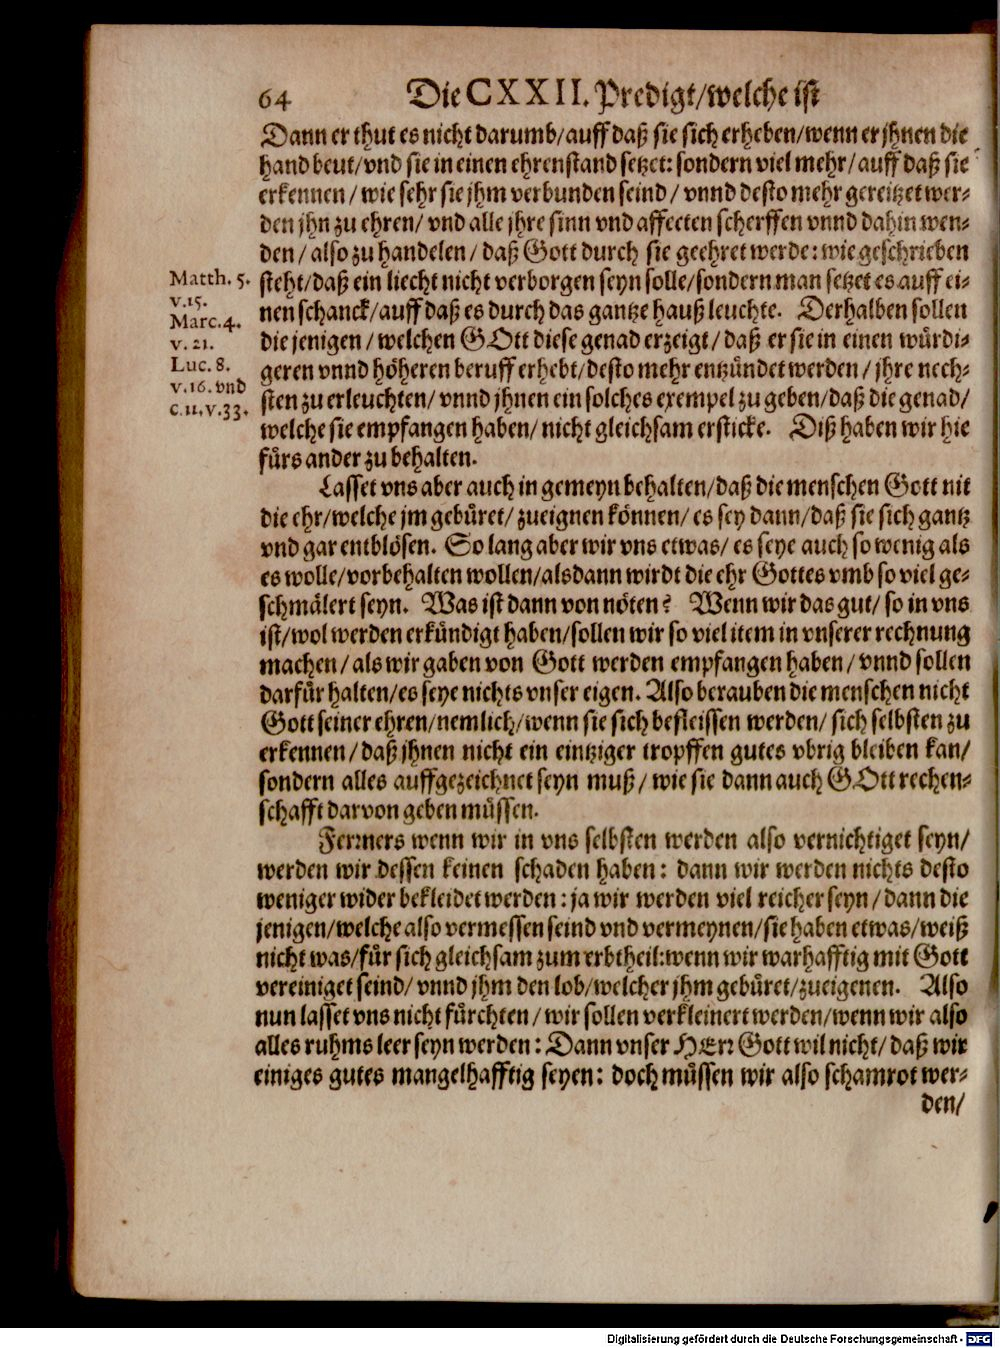 64 Die CXXII. Predigt/welche ist
Dann er thut es nicht darumb/auff daß sie sich erheben/wenn er jhnen die
hand beut/vnd sie in einen ehrenstand setzet: sondern viel mehr/auff daß sie
erkennen/wie sehr sie jhm verbunden seind/vnnd desto mehr gereitzet wer-
den jhn zu ehren/vnd alle jhre sinn vnd affecten scherffen vnnd dahin wen-
den/also zu handelen/daß Gott durch sie geehret werde: wie geschrieben
steht/daß ein liecht nicht verborgen seyn solle/sondern man setzet es auff ei-
nen schanck/auff daß es durch das gantze hauß leuchte. Derhalben sollen
die jenigen/welchen GOtt diese genad erzeigt/daß er sie in einen würdi-
geren vnnd höheren beruff erhebt/desto mehr entzündet werden/jhre nech-
sten zu erleuchten/vnnd jhnen ein solches exempel zu geben/daß die genad/
welche sie empfangen haben/nicht gleichsam ersticke. Diß haben wir hie
fürs ander zu behalten.
Matth. 5.
v.15.
Marc.4.
v. 21.
Luc. 8.
v.16. vnd
c.11.v.33.
Lasset vns aber auch in gemeyn behalten/daß die menschen Gott nit
die ehr/welche jm gebüret/zueignen können/es sey dann/daß sie sich gantz
vnd gar entblösen. So lang aber wir vns etwas/es seye auch so wenig als
es wolle/vorbehalten wollen/alsdann wirdt die ehr Gottes vmb so viel ge-
schmälert seyn. Was ist dann von nöten? Wenn wir das gut/so in vns
ist/wol werden erkündigt haben/sollen wir so viel item in vnserer rechnung
machen/als wir gaben von Gott werden empfangen haben/vnnd sollen
darfür halten/es seye nichts vnser eigen. Also berauben die menschen nicht
Gott seiner ehren/nemlich/wenn sie sich befleissen werden/sich selbsten zu
erkennen/daß jhnen nicht ein eintziger tropffen gutes vbrig bleiben kan/
sondern alles auffgezeichnet seyn muß/wie sie dann auch GOtt rechen-
schafft darvon geben müssen.
Ferrners wenn wir in vns selbsten werden also vernichtiget seyn/
werden wir dessen keinen schaden haben: dann wir werden nichts desto
weniger wider bekleidet werden: ja wir werden viel reicher seyn/dann die
jenigen/welche also vermessen seind vnd vermeynen/sie haben etwas/weiß
nicht was/für sich gleichsam zum erbtheil:wenn wir warhafftig mit Gott
vereiniget seind/vnnd jhm den lob/welcher jhm gebüret/zueigenen. Also
nun lasset vns nicht fürchten/wir sollen verkleinert werden/wenn wir also
alles ruhms leer seyn werden: Dann vnser HErr Gott wil nicht/daß wir
einiges gutes mangelhafftig seyen: doch müssen wir also schamrot wer-
den/
Digitalisierung gefördert durch die Deutsche Forschungsgemeinschaft - DFG